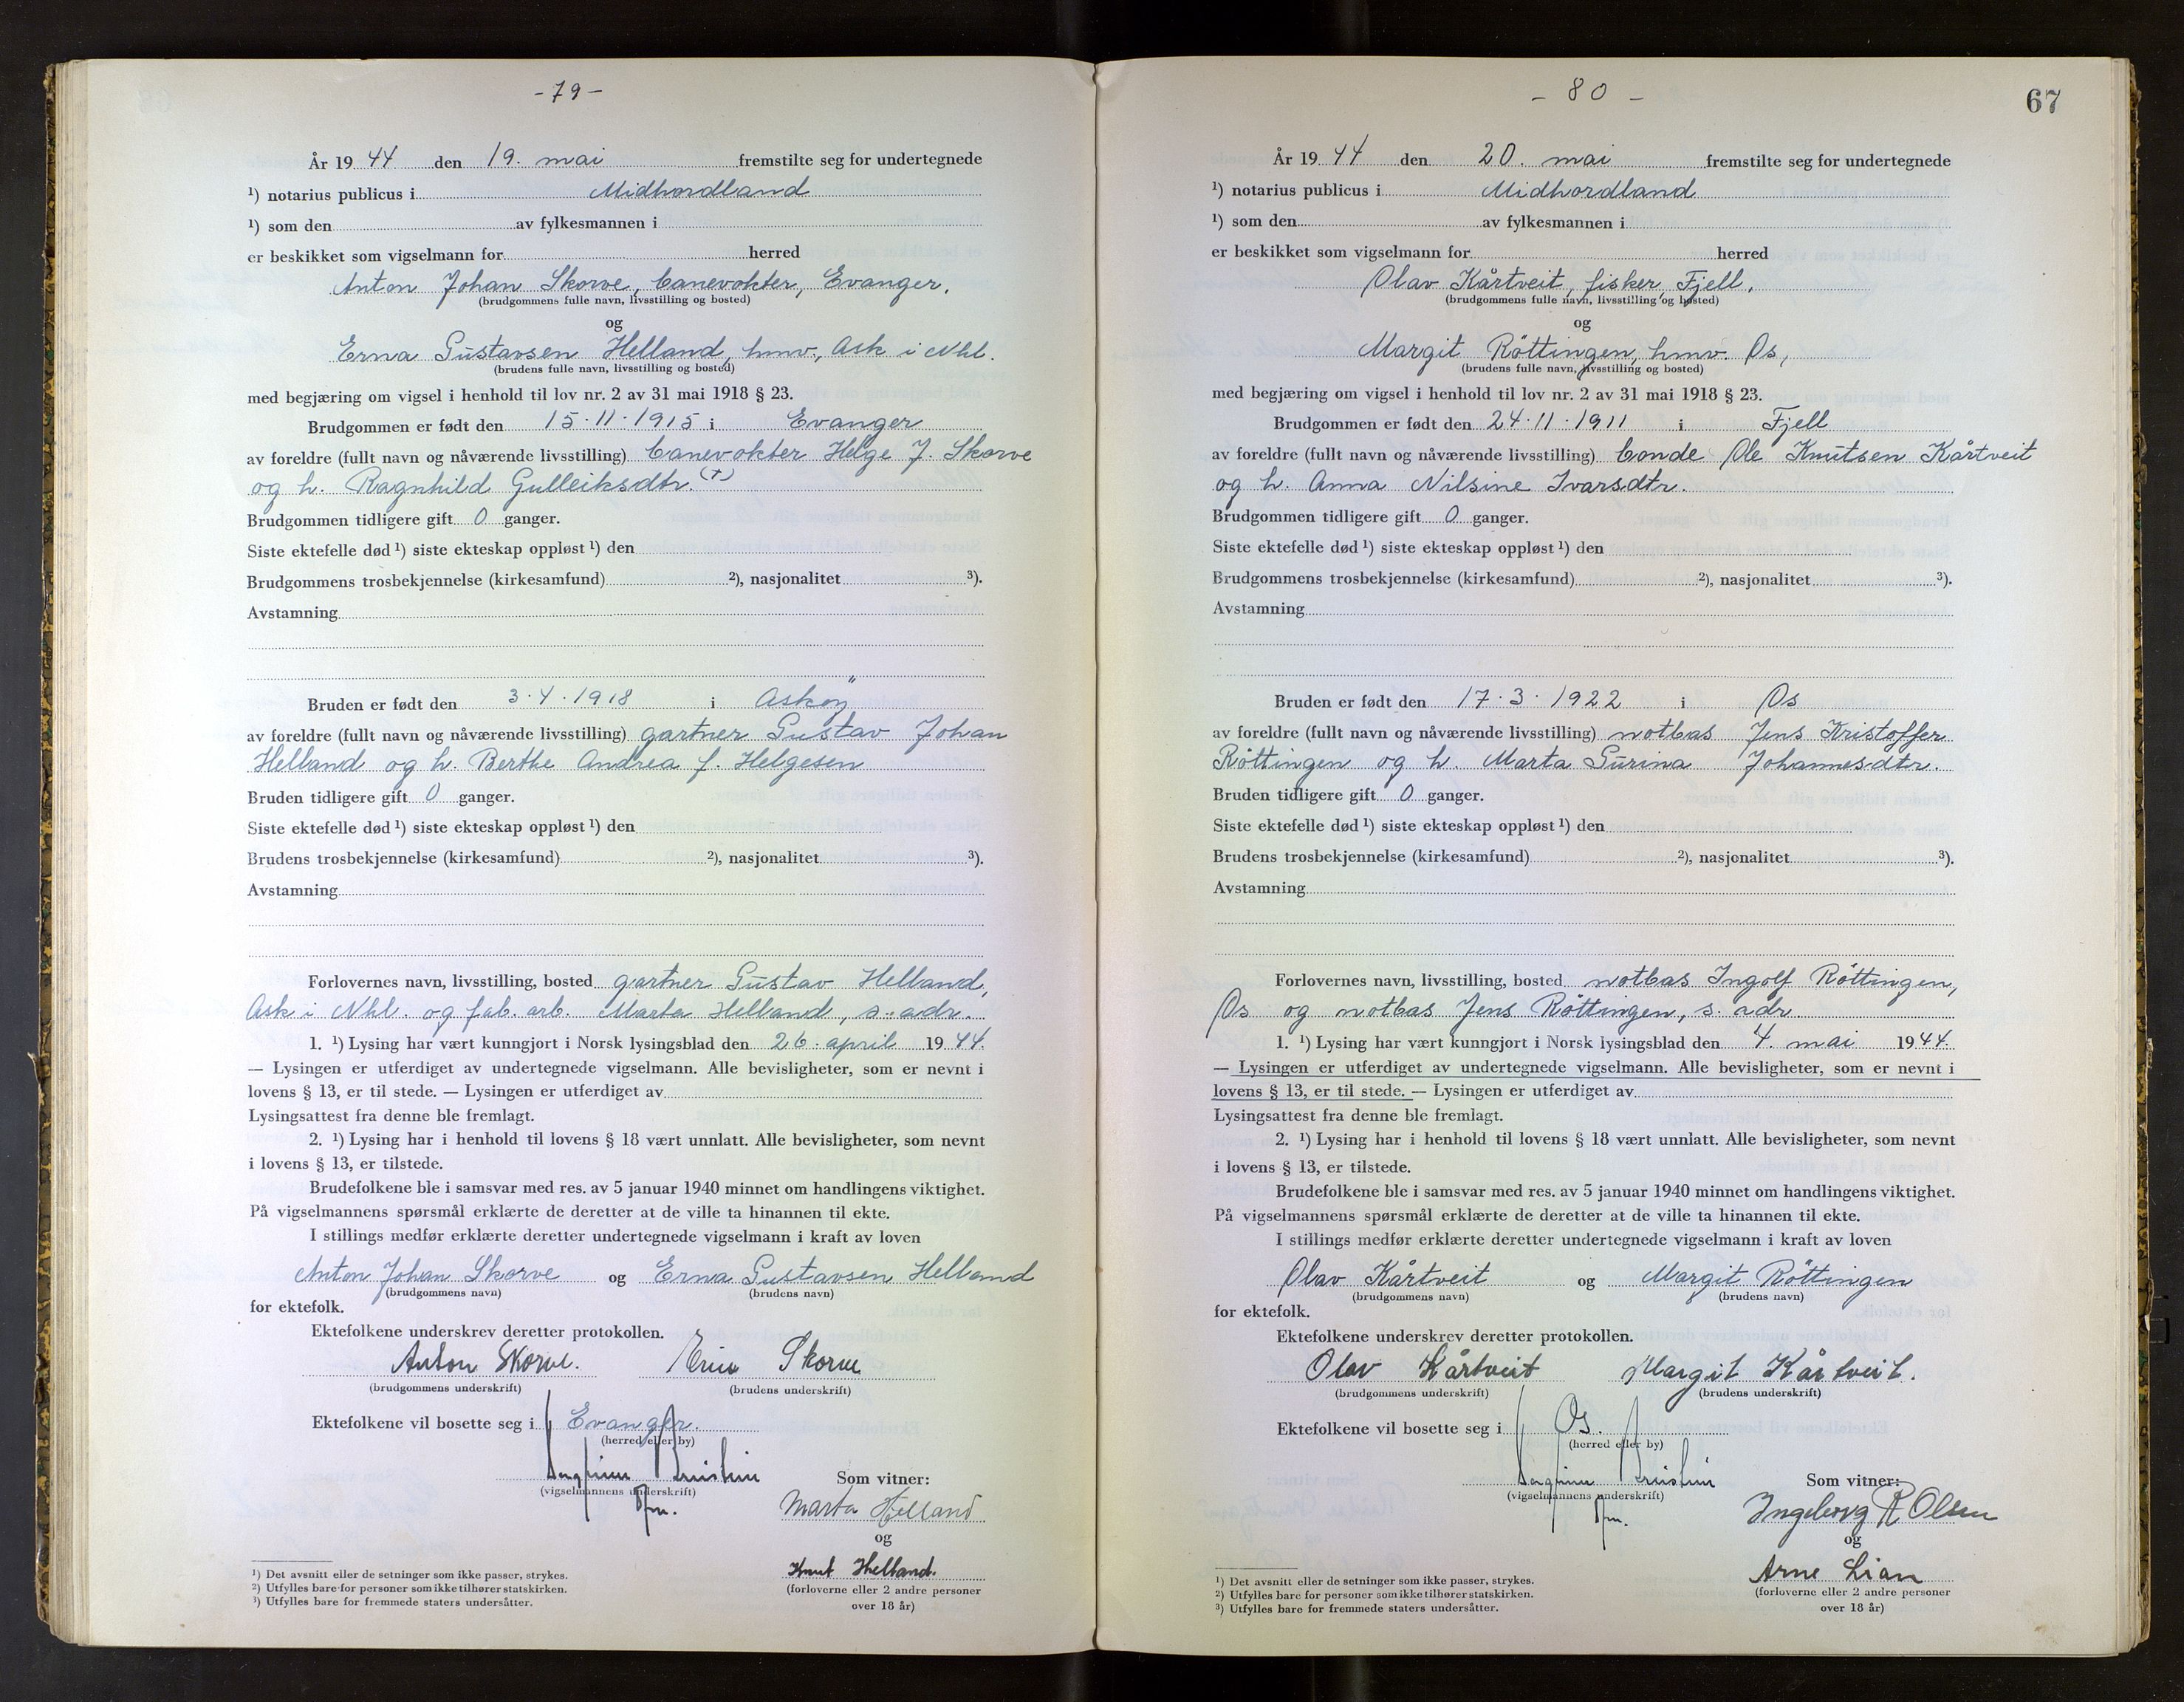 - 79 -
År 19 44 den 19. mai fremstilte seg for undertegnede
¹) notarius publicus i Midhordland
¹) som den av fylkesmannen i
er beskikket som vigselmann for herred
Anton Johan Skorve, banevokter, Evanger.
(brudgommens fulle navn, livsstilling og bosted)
og
Erna Gustavsen Helland, hmv., Ask i Nhl.
(brudens fulle navn, livsstilling og bosted)
med begjæring om vigsel i henhold til lov nr. 2 av 31 mai 1918 § 23.
Brudgommen er født den 15.11.1915 i Evanger
av foreldre (fullt navn og nåværende livsstilling) banevokter Helge J. Skorve
og h. Ragnhild Gulleiksdtr. (†)
Brudgommen tidligere gift 0 ganger.
Siste ektefelle død ¹) siste ekteskap oppløst ¹) den
Brudgommens trosbekjennelse (kirkesamfund) ²), nasjonalitet ³).
Avstamning
Bruden er født den 3.4.1918 i Asköy
av foreldre (fullt navn og nåværende livsstilling) gartner Gustav Johan
Helland og h. Berthe Andrea f. Helgesen
Bruden tidligere gift 0 ganger.
Siste ektefelle død ¹) siste ekteskap oppløst ¹) den
Brudens trosbekjennelse (kirkesamfund) ²), nasjonalitet ³).
Avstamning
Forlovernes navn, livsstilling, bosted gartner Gustav Helland,
Ask i Nhl. og fab. arb. Marta Helland, s. adr.
1. ¹) Lysing har vært kunngjort i Norsk lysingsblad den 26. april 19 44.
— Lysingen er utferdiget av undertegnede vigselmann. Alle bevisligheter, som er nevnt i
lovens § 13, er til stede. — Lysingen er utferdiget av
Lysingsattest fra denne ble fremlagt.
2. ¹) Lysing har i henhold til lovens § 18 vært unnlatt. Alle bevisligheter, som nevnt
i lovens § 13, er tilstede.
Brudefolkene ble i samsvar med res. av 5 januar 1940 minnet om handlingens viktighet.
På vigselmannens spørsmål erklærte de deretter at de ville ta hinannen til ekte.
I stillings medfør erklærte deretter undertegnede vigselmann i kraft av loven
Anton Johan Skorve og Erna Gustavsen Helland
(brudgommens navn) (brudens navn)
for ektefolk.
Ektefolkene underskrev deretter protokollen.
Anton Skorve. Erna Skorve
(brudgommens underskrift) (brudens underskrift)
Ektefolkene vil bosette seg i Evanger.
(herred eller by)
(vigselmannens underskrift)
Som vitner:
Marta Helland
og
Knut Helland.
(forloverne eller 2 andre personer
over 18 år)
¹) Det avsnitt eller de setninger som ikke passer, strykes.
²) Utfylles bare for personer som ikke tilhører statskirken.
³) Utfylles bare for fremmede staters undersåtter.
- 80 -
67
År 19 44 den 20. mai fremstilte seg for undertegnede
¹) notarius publicus i Midhordland
¹) som den av fylkesmannen i
er beskikket som vigselmann for herred
Olav Kårtveit, fisker, Fjell,
(brudgommens fulle navn, livsstilling og bosted)
og
Margit Röttingen, hmv. Os,
(brudens fulle navn, livsstilling og bosted)
med begjæring om vigsel i henhold til lov nr. 2 av 31 mai 1918 § 23.
Brudgommen er født den 24.11.1911 i Fjell
av foreldre (fullt navn og nåværende livsstilling) bonde Ole Knutsen Kårtveit
og h. Anna Nilsine Ivarsdtr.
Brudgommen tidligere gift 0 ganger.
Siste ektefelle død ¹) siste ekteskap oppløst ¹) den
Brudgommens trosbekjennelse (kirkesamfund) ²), nasjonalitet ³).
Avstamning
Bruden er født den 17.3.1922 i Os
av foreldre (fullt navn og nåværende livsstilling) notbas Jens Kristoffer
Röttingen og h. Marta Gurina Johannesdtr.
Bruden tidligere gift 0 ganger.
Siste ektefelle død ¹) siste ekteskap oppløst ¹) den
Brudens trosbekjennelse (kirkesamfund) ²), nasjonalitet ³).
Avstamning
Forlovernes navn, livsstilling, bosted notbas Ingolf Röttingen,
Os og notbas Jens Röttingen, s. adr.
1. ¹) Lysing har vært kunngjort i Norsk lysingsblad den 4. mai 19 44.
— Lysingen er utferdiget av undertegnede vigselmann. Alle bevisligheter, som er nevnt i
lovens § 13, er til stede. — Lysingen er utferdiget av
Lysingsattest fra denne ble fremlagt.
2. ¹) Lysing har i henhold til lovens § 18 vært unnlatt. Alle bevisligheter, som nevnt
i lovens § 13, er tilstede.
Brudefolkene ble i samsvar med res. av 5 januar 1940 minnet om handlingens viktighet.
På vigselmannens spørsmål erklærte de deretter at de ville ta hinannen til ekte.
I stillings medfør erklærte deretter undertegnede vigselmann i kraft av loven
Olav Kårtveit og Margit Röttingen
(brudgommens navn) (brudens navn)
for ektefolk.
Ektefolkene underskrev deretter protokollen.
Olav Kårtveit Margit Kårtveit.
(brudgommens underskrift) (brudens underskrift)
Ektefolkene vil bosette seg i Os.
(herred eller by)
(vigselmannens underskrift)
Som vitner:
Ingeborg R Olsen
og
Arne Lian
(forloverne eller 2 andre personer
over 18 år)
¹) Det avsnitt eller de setninger som ikke passer, strykes.
²) Utfylles bare for personer som ikke tilhører statskirken.
³) Utfylles bare for fremmede staters undersåtter.